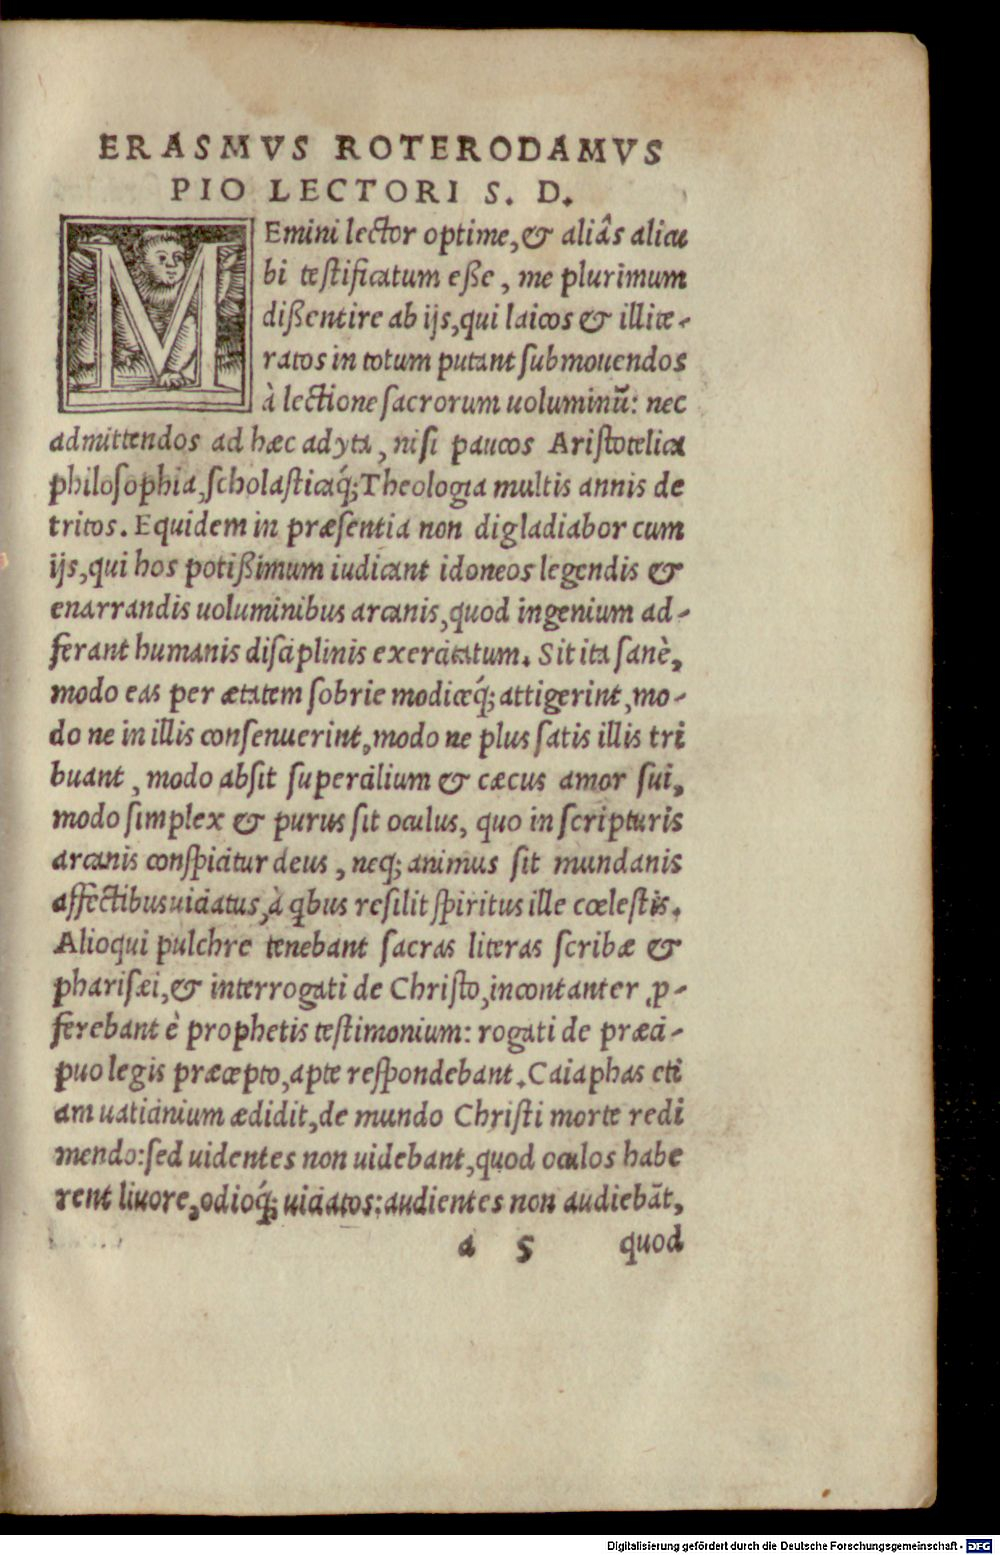 ERASMVS ROTERODAMVS
PIO LECTORI S. D.
MEmini lector optime, & aliâs alicu
bi testificatum eße, me plurimum
dißentire ab ijs, qui laicos & illite-
ratos in totum putant submouendos
à lectione sacrorum uoluminũ: nec
admittendos ad hæc adyta, nisi paucos Aristotelica
philosophia, scholasticaq́; Theologia multis annis de
tritos. Equidem in præsentia non digladiabor cum
ijs, qui hos potißimum iudicant idoneos legendis &
enarrandis uoluminibus arcanis, quod ingenium ad-
ferant humanis disciplinis exercitatum. Sit ita sanè,
modo eas per ætatem sobrie modiceq́; attigerint, mo-
do ne in illis consenuerint, modo ne plus satis illis tri
buant, modo absit supercilium & cæcus amor sui,
modo simplex & purus sit oculus, quo in scripturis
arcanis conspicitur deus, neq; animus sit mundanis
affectibus uiciatus, à qbus resilit spiritus ille cœlestis.
Alioqui pulchre tenebant sacras literas scribæ &
pharisæi, & interrogati de Christo, incontanter ꝓ-
ferebant è prophetis testimonium: rogati de præci-
puo legis præcepto, apte respondebant. Caiaphas eti
am uaticinium ædidit, de mundo Christi morte redi
mendo: sed uidentes non uidebant, quod oculos habe
rent liuore, odioq́; uiciatos: audientes non audiebãt,
a 5 quod
Digitalisierung gefördert durch die Deutsche Forschungsgemeinschaft - DFG